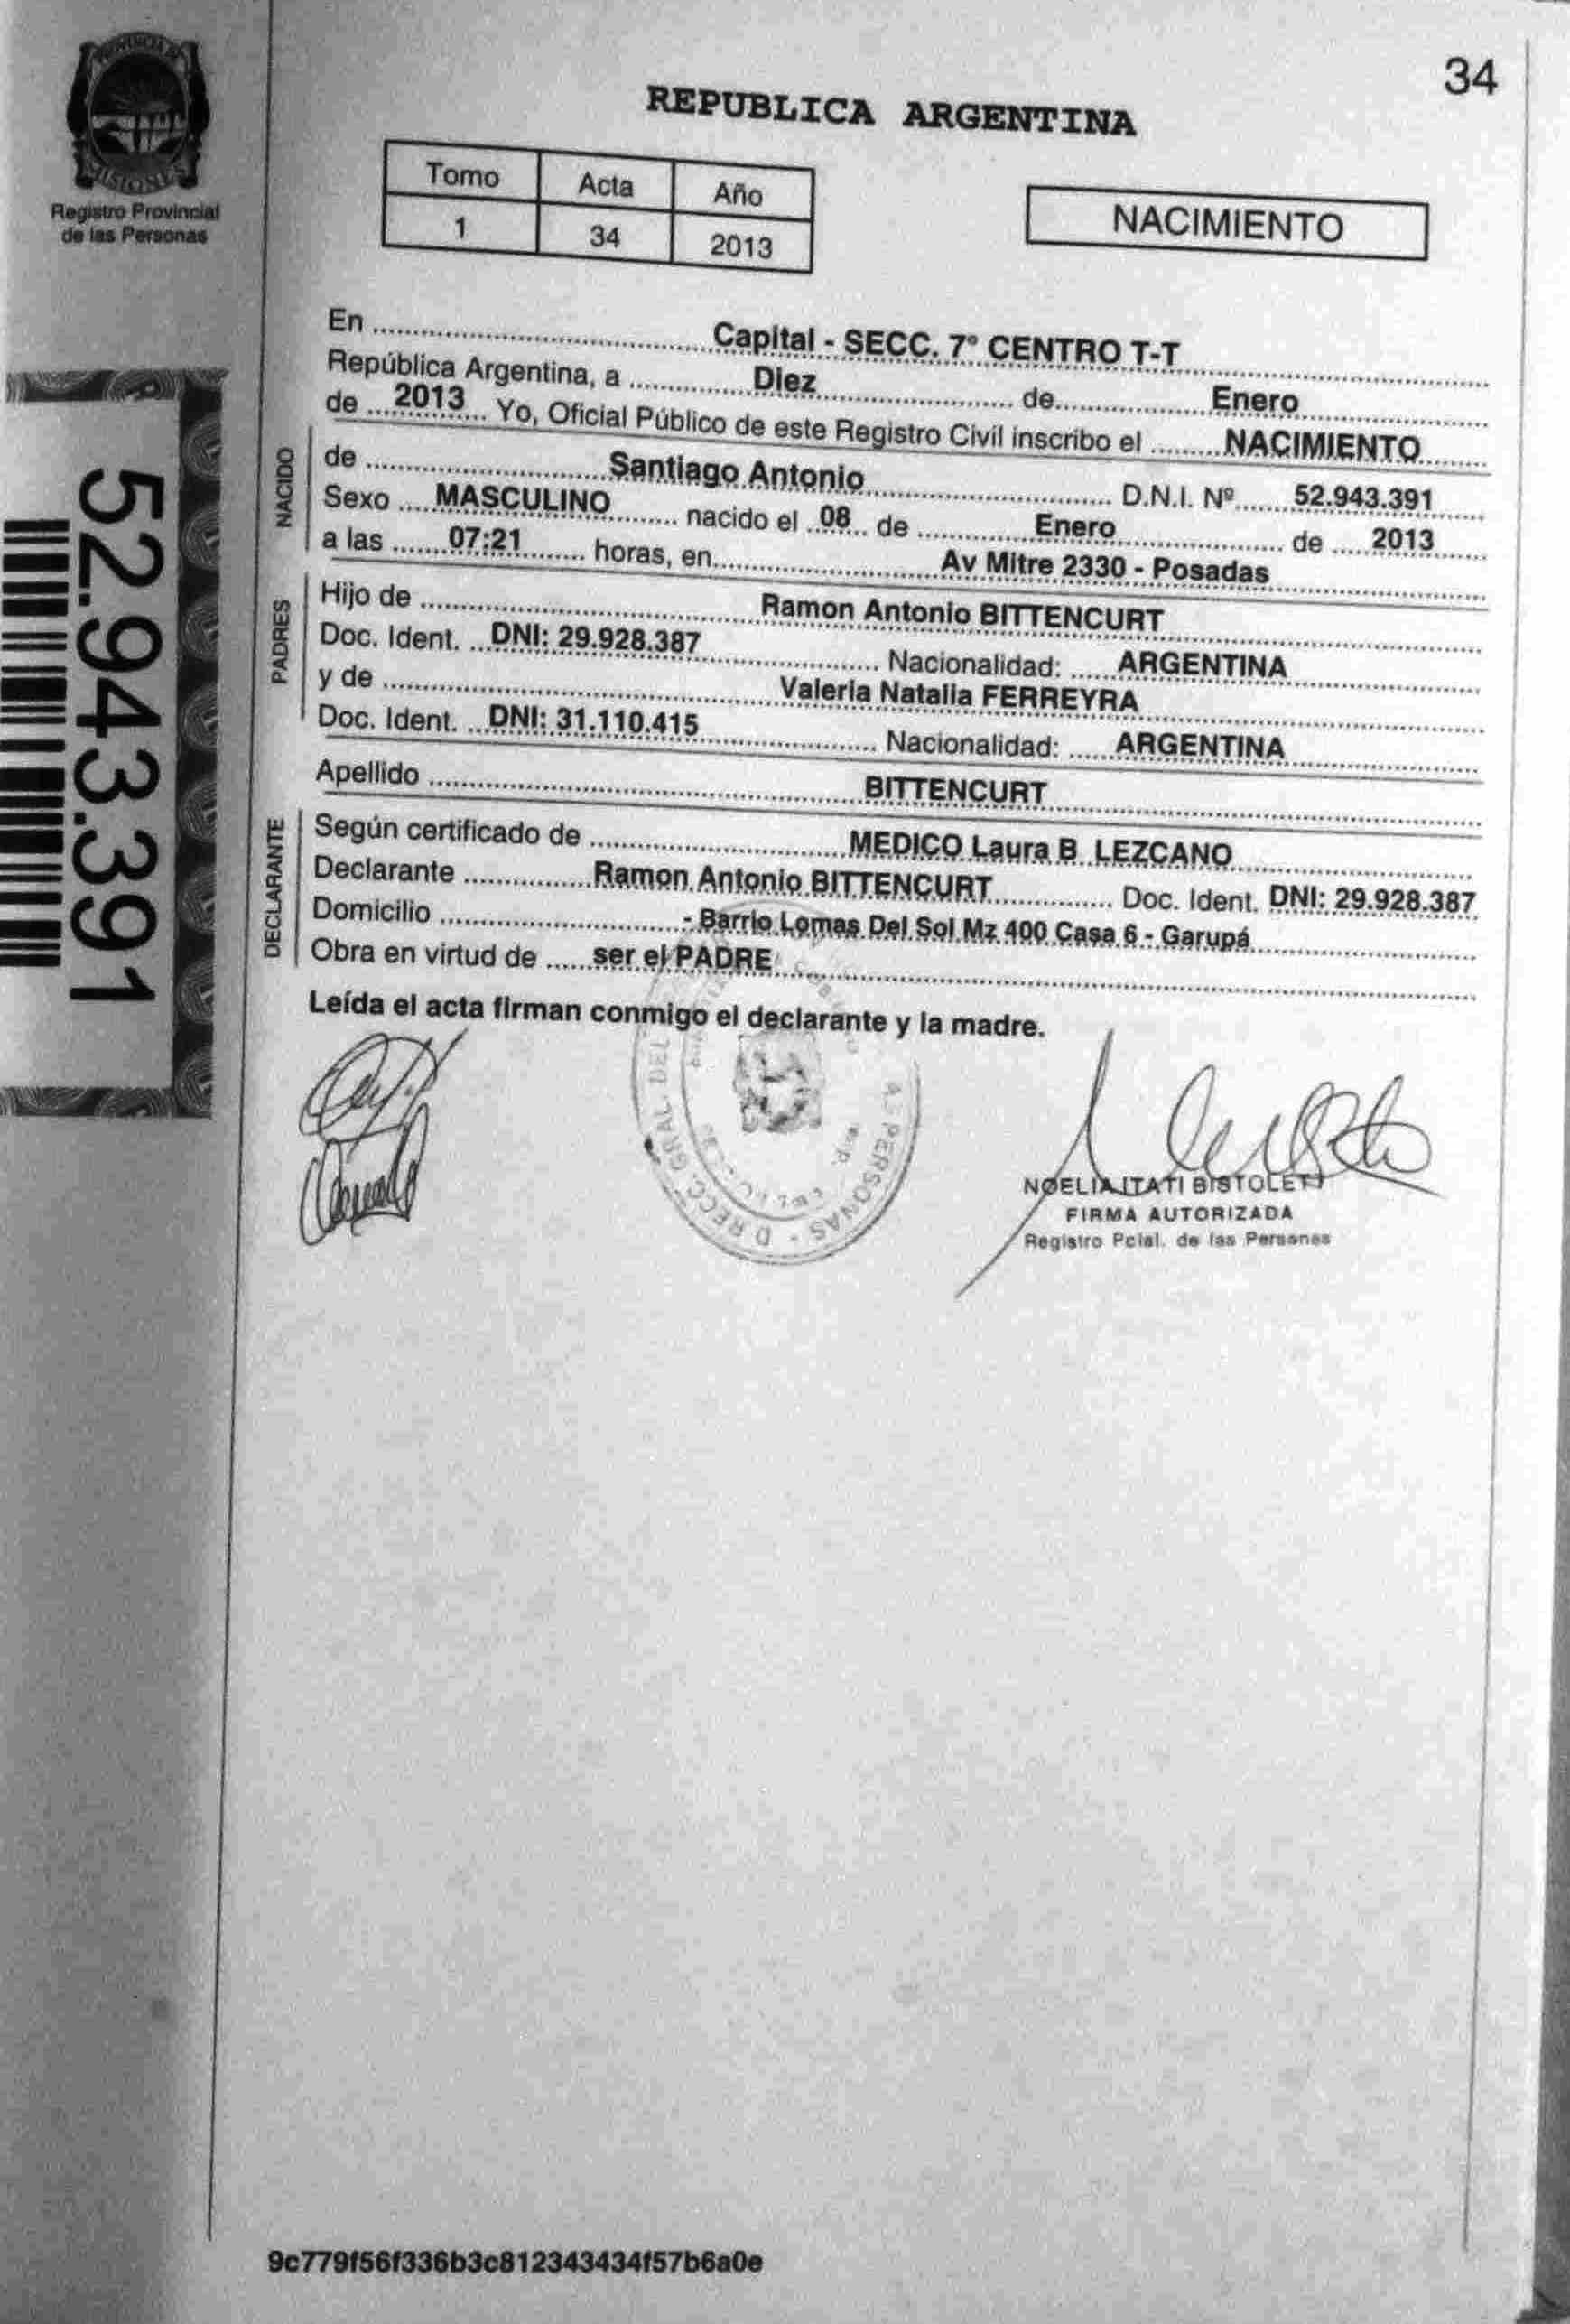 34
REPUBLICA ARGENTINA
PROVINCIA DE
MISIONES
Registro Provincial
de las Personas
Tomo Acta Año
1 34 2013
NACIMIENTO
52.943.391
En Capital - SECC. 7° CENTRO T-T
República Argentina, a Diez de Enero
de 2013 Yo, Oficial Público de este Registro Civil inscribo el NACIMIENTO
NACIDO
de Santiago Antonio D.N.I. Nº 52.943.391
Sexo MASCULINO nacido el 08 de Enero de 2013
a las 07:21 horas, en Av Mitre 2330 - Posadas
PADRES
Hijo de Ramon Antonio BITTENCURT
Doc. Ident. DNI: 29.928.387 Nacionalidad: ARGENTINA
y de Valeria Natalia FERREYRA
Doc. Ident. DNI: 31.110.415 Nacionalidad: ARGENTINA
Apellido BITTENCURT
DECLARANTE
Según certificado de MEDICO Laura B LEZCANO
Declarante Ramon Antonio BITTENCURT Doc. Ident. DNI: 29.928.387
Domicilio - Barrio Lomas Del Sol Mz 400 Casa 6 - Garupá
Obra en virtud de ser el PADRE
Leída el acta firman conmigo el declarante y la madre.
GRAL. DEL
PERSONAS
NOELIA ITATI BISTOLETTI
FIRMA AUTORIZADA
Registro Pcial. de las Personas
9c779f56f336b3c812343434f57b6a0e